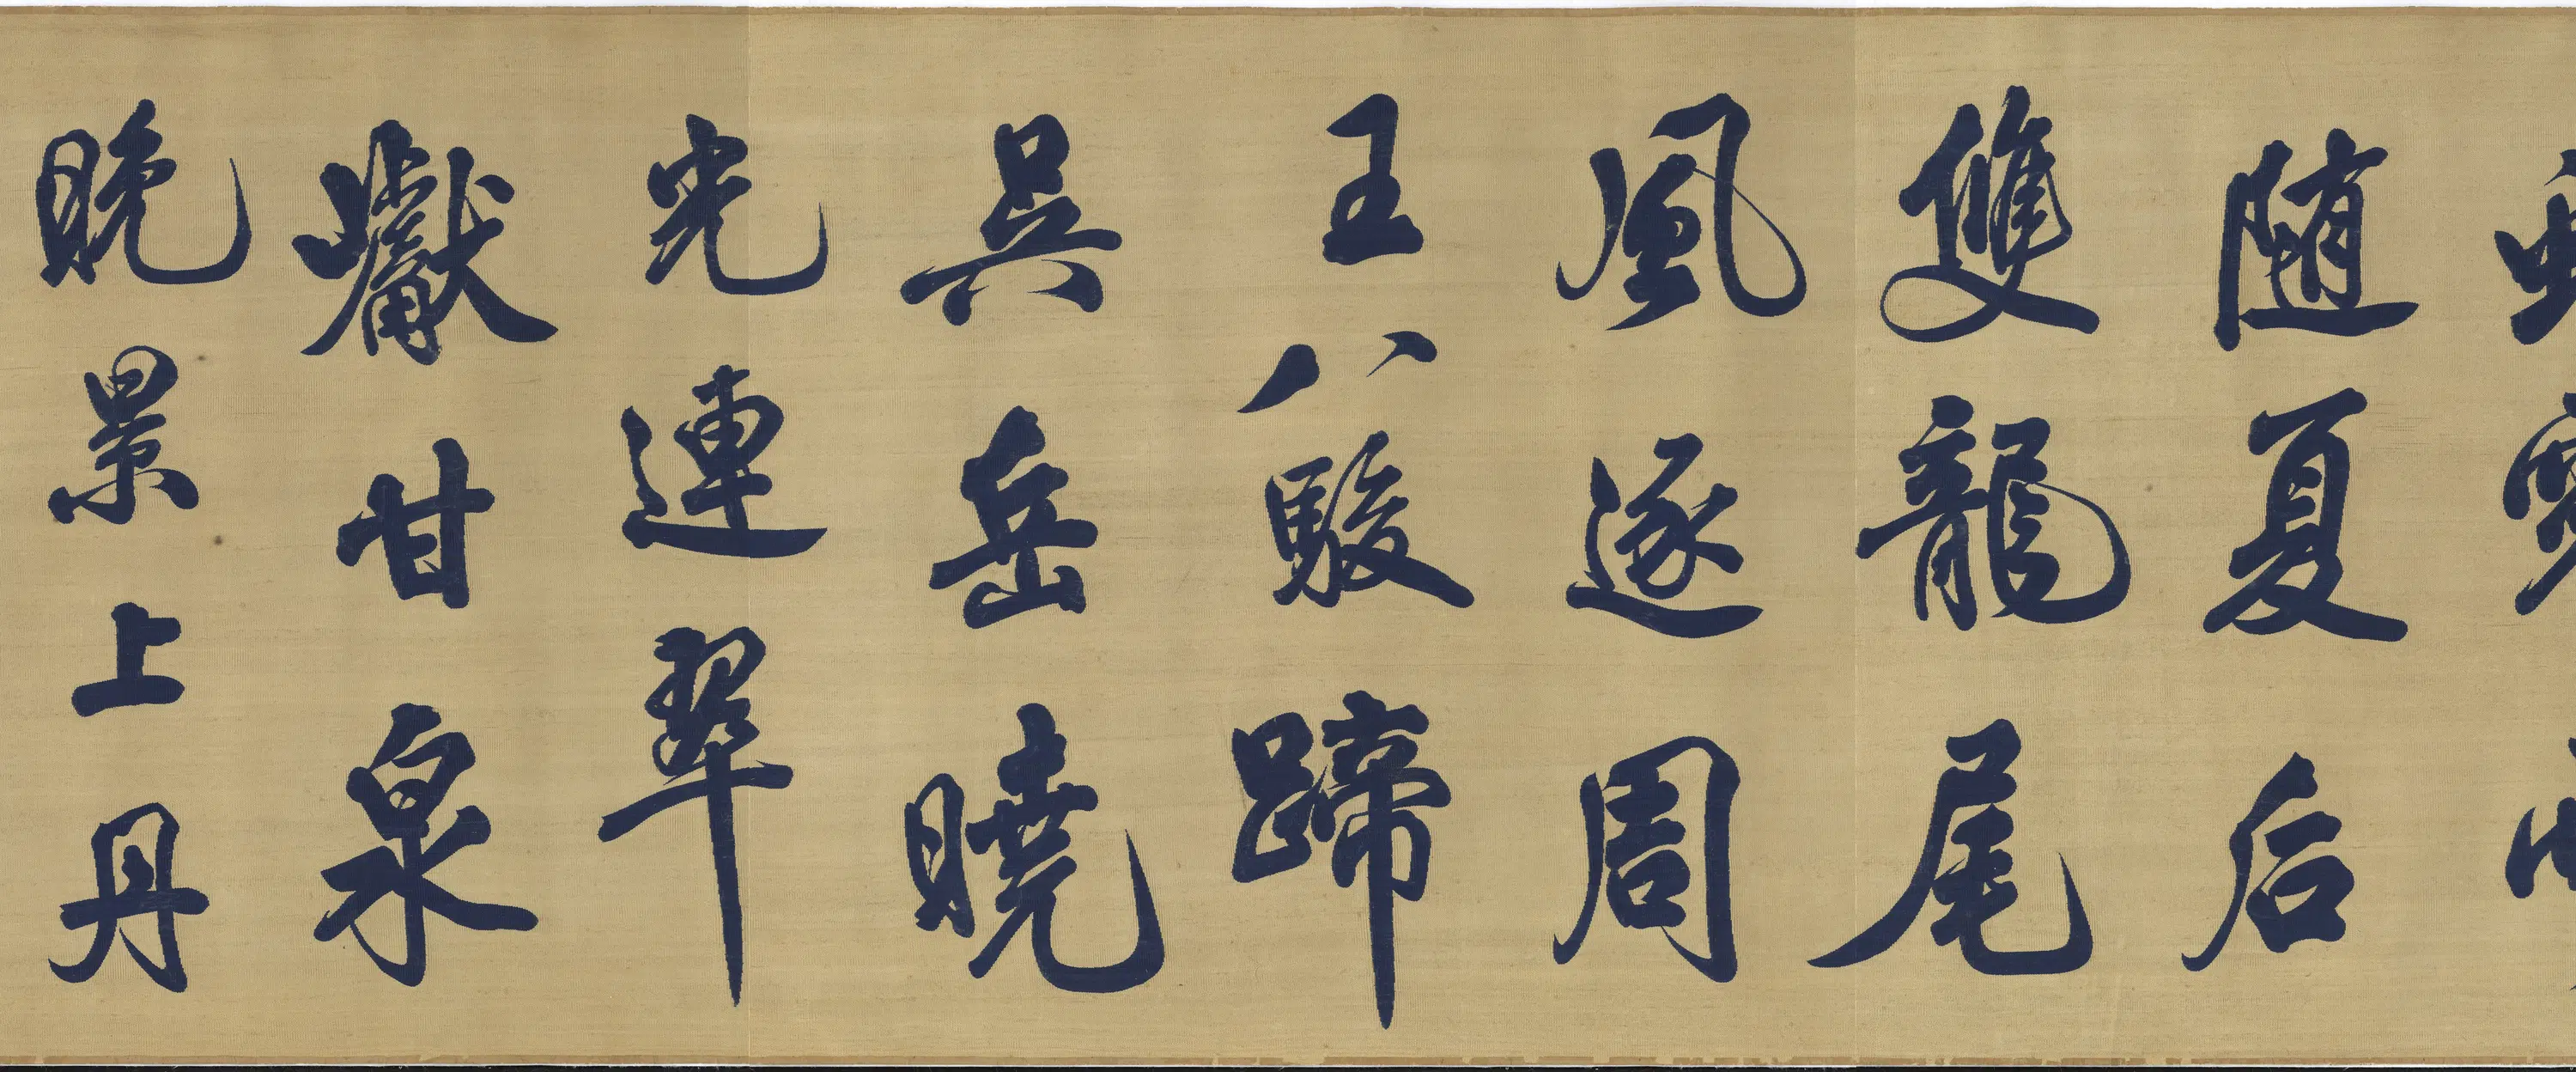 随夏后
雙龍尾
風逐周
王八駿蹄
吳岳曉
光連翠
巘甘泉
晚景上丹